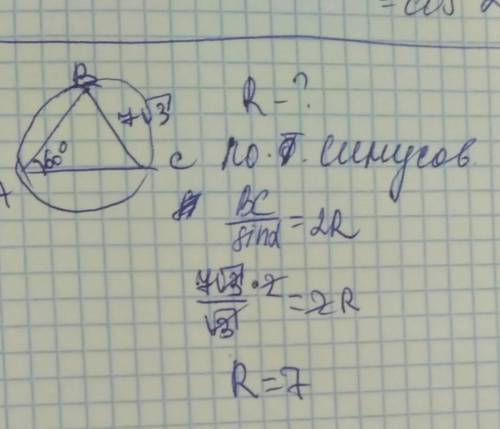 = cos 2
B
7√3
60°
A
C
R - ?
по т. синусов
BC/sinα = 2R
7√3·2/√3 = 2R
R = 7